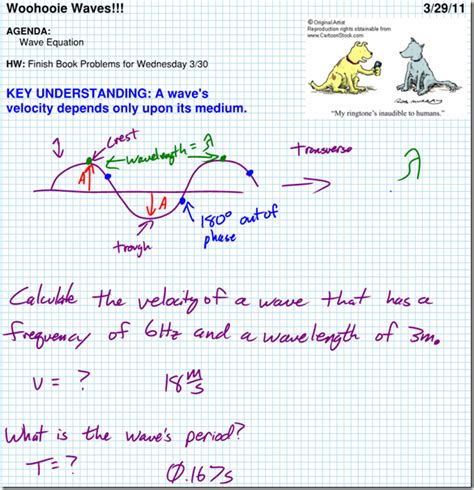 Woohooie Waves!!! 3/29/11
AGENDA:
Wave Equation
HW: Finish Book Problems for Wednesday 3/30
© Original Artist
Reproduction rights obtainable from
www.CartoonStock.com
KEY UNDERSTANDING: A wave's
velocity depends only upon its medium.
"My ringtone's inaudible to humans."
crest
wavelength = λ
transverse
λ
A
A
180° out of
phase
trough
Calculate the velocity of a wave that has a
frequency of 6Hz and a wavelength of 3m.
v = ? 18 m/s
What is the wave's period?
T = ? 0.167s